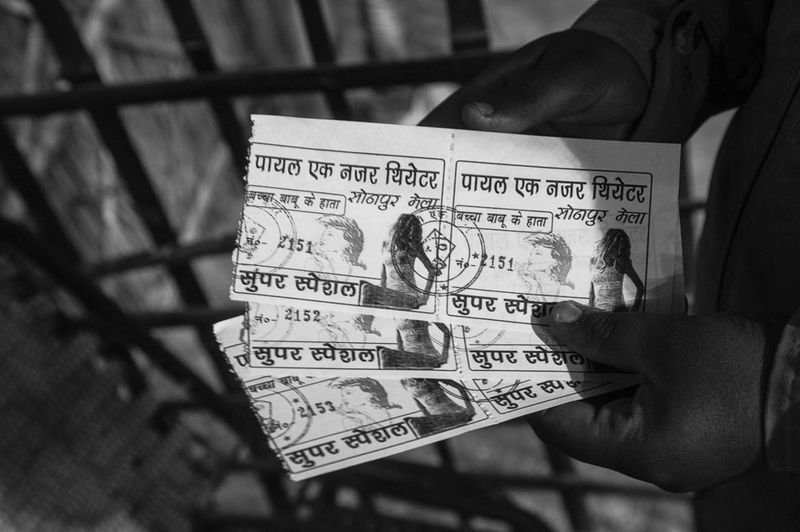 पायल एक नजर थियेटर
बच्चा बाबू के हाता सोनपुर मेला
नं०- 2151
सुपर स्पेशल
पायल एक नजर थियेटर
बच्चा बाबू के हाता सोनपुर मेला
नं०- 2151
सुपर
नं०- 2152
सुपर स्पेशल
सुपर स्पेशल
2153
सुपर स्पेशल
सुपर